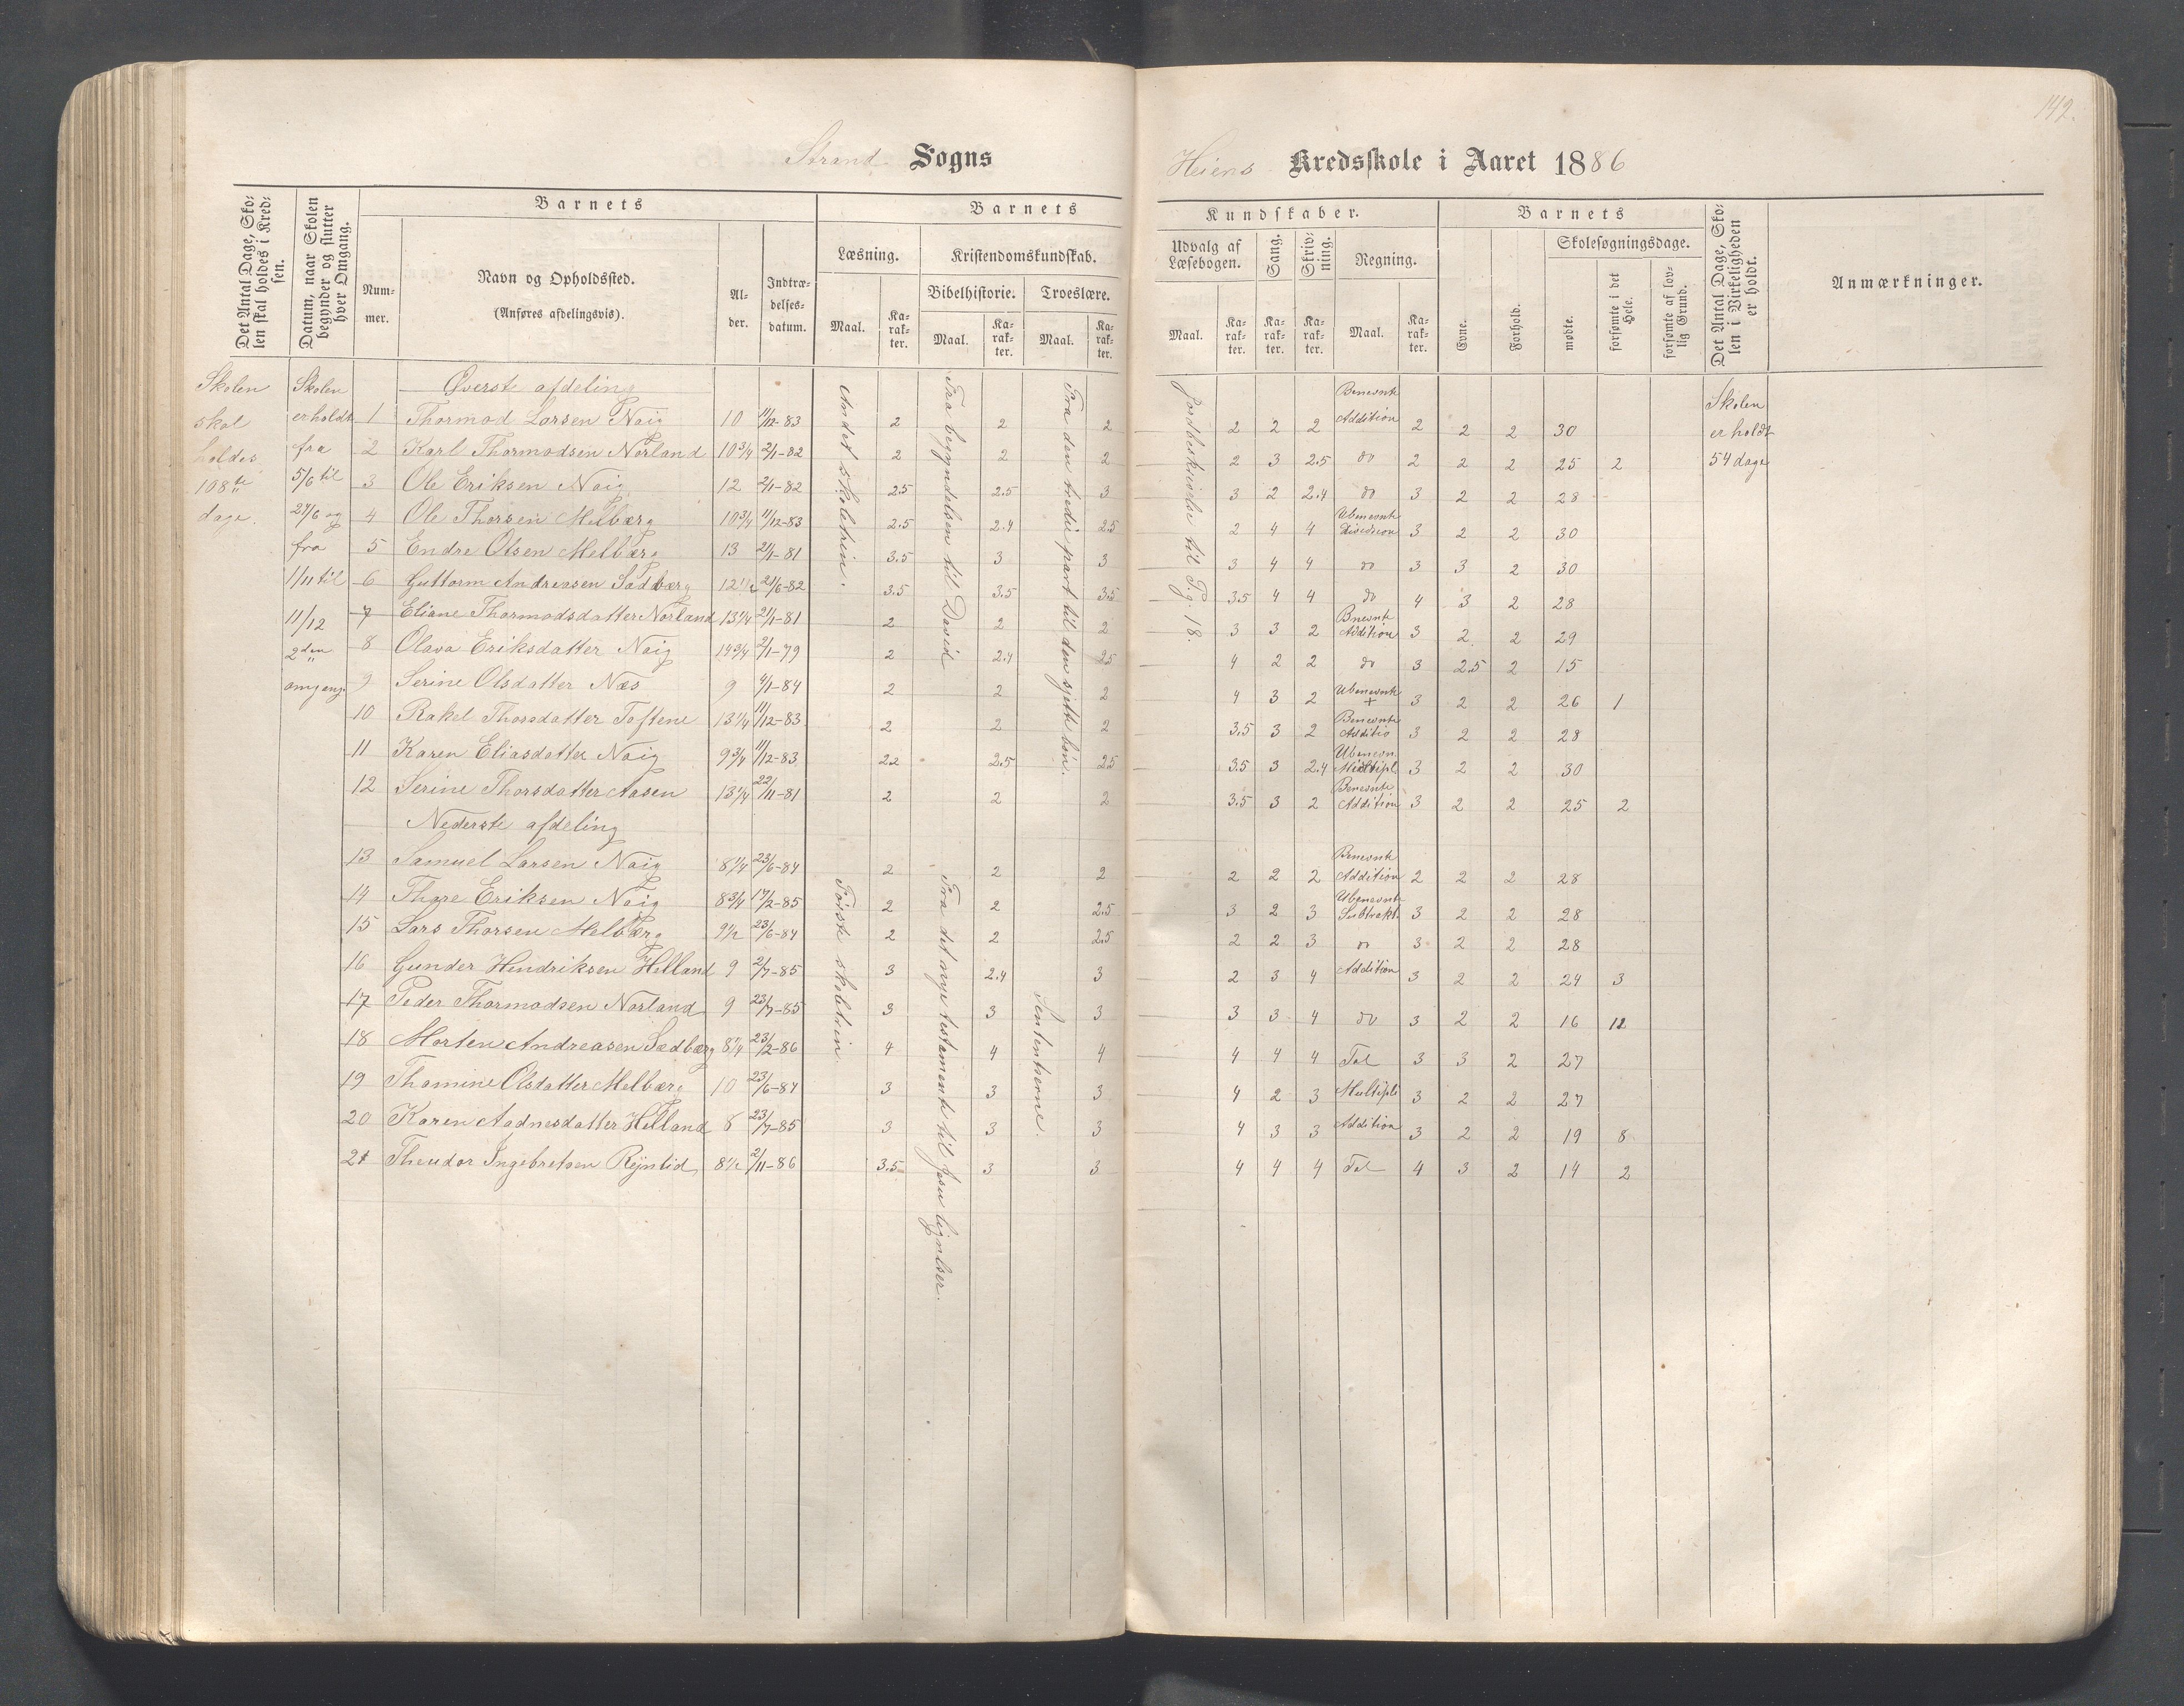 142.
Strand Sogns
Heiens Kredsskole i Aaret 1886
Det Antal Dage, Skolen skal holdes i Kredsen.
Datum, naar Skolen begynder og slutter hver Omgang.
Barnets
Nummer.
Navn og Opholdssted.
(Anføres afdelingsvis).
Alder.
Indtrædelsesdatum.
Barnets
Læsning.
Maal.
Karakter.
Kristendomskundskab.
Bibelhistorie.
Maal.
Karakter.
Troeslære.
Maal.
Karakter.
Kundskaber.
Udvalg af Læsebogen.
Maal.
Karakter.
Sang.
Karakter.
Skrivning.
Karakter.
Regning.
Maal.
Karakter.
Barnets
Evne.
Forhold.
Skolesøgningsdage.
mødte.
forsømte i det Hele.
forsømte af lovlig Grund.
Det Antal Dage, Skolen i Virkeligheden er holdt.
Anmærkninger.
Skolen skal holdes 108te dage.
Skolen er holdt fra 5/6 til 24/6 og fra 1/11 til 11/12 2den omgang.
Andet skoletrin.
Fra begyndelsen til David
Fra den tredie part til den sjette bøn.
Jordbeskrivelse til Pg. 18.
Skolen er holdt 54 dage
Øverste afdeling
1 Thormod Larsen Noig 10 11/12-83 2 2 2 2 2 2 Benevnte Addition 2 2 2 30
2 Karl Thormodsen Norland 10 3/4 2/1-82 2 2 2 2 3 2.5 do 2 2 2 25 2
3 Ole Eriksen Noig 12 2/1-82 2.5 2.5 3 3 2 2.4 do 3 2 2 28
4 Ole Thorsen Melbærg 10 3/4 11/12-83 2.5 2.4 2.5 2 4 4 Ubenevnte Division 3 2 2 30
5 Endre Olsen Melbærg 13 21/1-81 3.5 3 3 3 4 4 do 3 3 2 30
6 Guttorm Andreasen Sødbærg 12 1/2 21/6-82 3.5 3.5 3.5 3.5 4 4 do 4 3 2 28
7 Eliane Thormodsdatter Norland 13 1/4 21/1-81 2 2 2 3 3 2 Bnevnte Addition 3 2 2 29
8 Olava Eriksdatter Noig 14 3/4 2/1-79 2 2.4 2.5 4 2 2 do 3 2.5 2 15
9 Serine Olsdatter Næs 9 4/1-84 2 2 2 4 3 2 Ubenevnte + 3 2 2 26 1
10 Rakel Thorsdatter Toftene 13 1/4 11/12-83 2 2 2 3.5 3 2 Benevnte Additio 3 2 2 28
11 Karen Eliasdatter Noig 9 3/4 11/12-83 2.2 2.5 2.5 3.5 3 2.4 Ubenevn Multipl 3 2 2 30
12 Serine Thorsdatter Aasen 13 1/4 22/11-81 2 2 2 3.5 3 2 Benevnte Addition 3 2 2 25 2
Nederste afdeling
Første skoletrin
Fra det nye testamente til Jesu lignelser.
Sententserne.
13 Samuel Larsen Noig 8 1/4 23/6-84 2 2 2 2 2 2 Benevnte Addition 2 2 2 28
14 Thore Eriksen Noig 8 3/4 17/2-85 2 2 2.5 3 2 3 Ubenevnte Subtrakt 3 2 2 28
15 Lars Thorsen Melbærg 9 1/2 23/6-84 2 2 2.5 2 2 3 do 3 2 2 28
16 Gunder Hendriksen Helland 9 2/7-85 3 2.4 3 2 3 4 Addition 3 2 2 24 3
17 Peder Thormodsen Norland 9 23/7-85 3 3 3 3 3 4 do 3 2 2 16 12
18 Morten Andreasen Sødbærg 8 1/4 23/2-86 4 4 4 4 4 4 Tal 3 3 2 27
19 Thomine Olsdatter Melbærg 10 23/6-84 3 3 3 4 2 3 Multipli 3 2 2 27
20 Karen Aadnesdatter Helland 8 23/7-85 3 3 3 4 3 3 Addition 3 2 2 19 8
21 Theodor Ingebretsen Rønlid 8 1/2 2/11-86 3.5 3 3 4 4 4 Tal 4 3 2 14 2